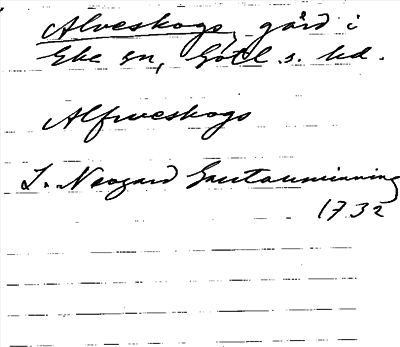 Alveskogs, gård i
Eke sn, Gotl. s. hd.
Alfweskogs
J. Neogard Gautauminning
1732